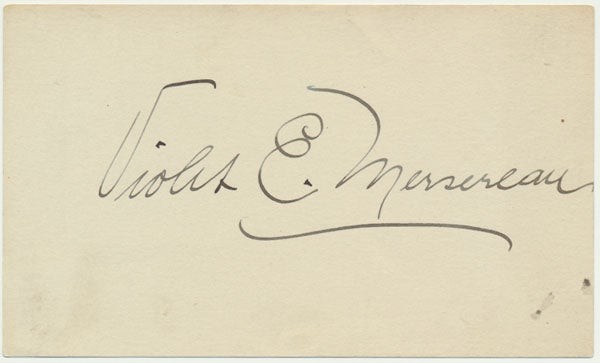 Violet E. Mersereau